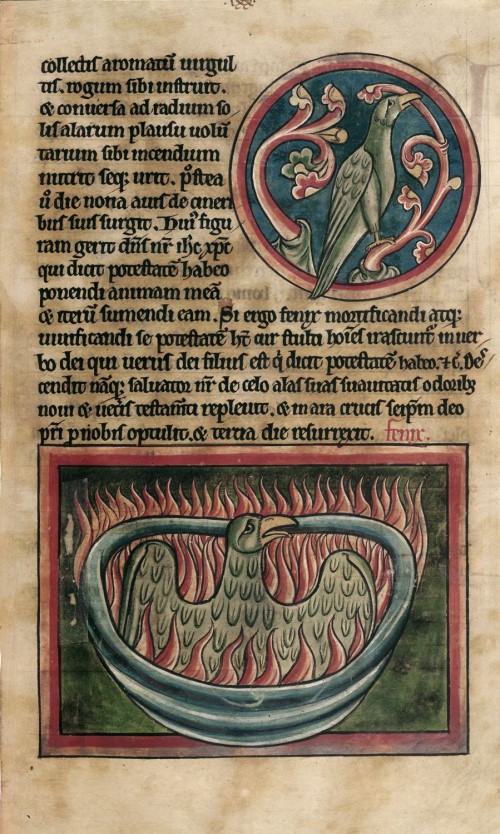 collectis aromatū uirgul
tis. rogum sibi instruit.
& conuersa ad radium so
lis alarum plausu uolū
tarium sibi incendium
nutrit seqꝫ urit. p̄stea
ū die nona auis de cineri
bus suis surgit. Huiꝰ figu
ram gerit dn̄s nr̄ ih̄c xp̄c
qui dicit potestatē habeo
ponendi animam meā
& iterū sumendi eam. Si ergo fenix mortificandi atqꝫ
uiuificandi se potestatē ht̄ cur stulti hoīes irascunt̄ in uer
bo dei qui uerus dei filius est q̇ dicit potestatē habeo. ⁊ c̄. Des
cendit nāqꝫ saluator nr̄ de celo alas suas suauitatis odoribꝫ
noui & uet̄is testam̄ti repleuit. & in ara crucis seip̄m deo
pr̄i ꝓ nobis optulit. & tertia die resurrexit. fenix.